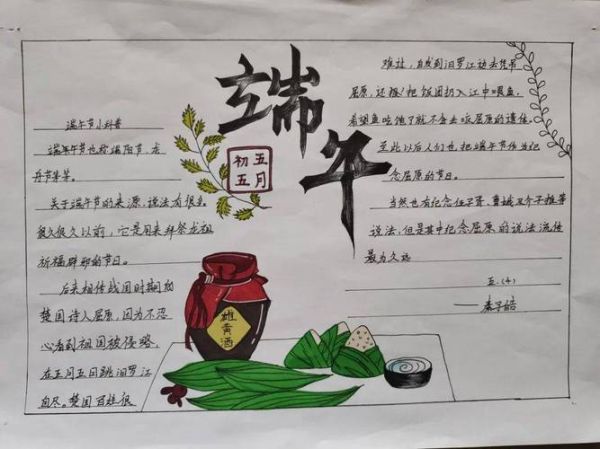 端午
五月
初五
端午节小科普
端午节也称端阳节、龙
舟节等等。
关于端午节的来源,说法有很多。
很久很久以前,它是用来拜祭龙祖
祈福辟邪的节日。
后来相传战国时期的
楚国诗人屈原,因为不忍
心看到祖国被侵略,
在五月五日跳汨罗江
自尽。楚国百姓很
雄黄酒
难过,自发到汨罗江边去凭吊
屈原,还
把饭团扔入江中喂鱼,
希望鱼吃饱了就不会去咬屈原的遗体。
至此以后人们也把端午节作为纪
念屈原的节日。
当然也有纪念伍子胥、曹娥及介子推等
说法,但是其中纪念屈原的说法流传
最为久远
五.(4)